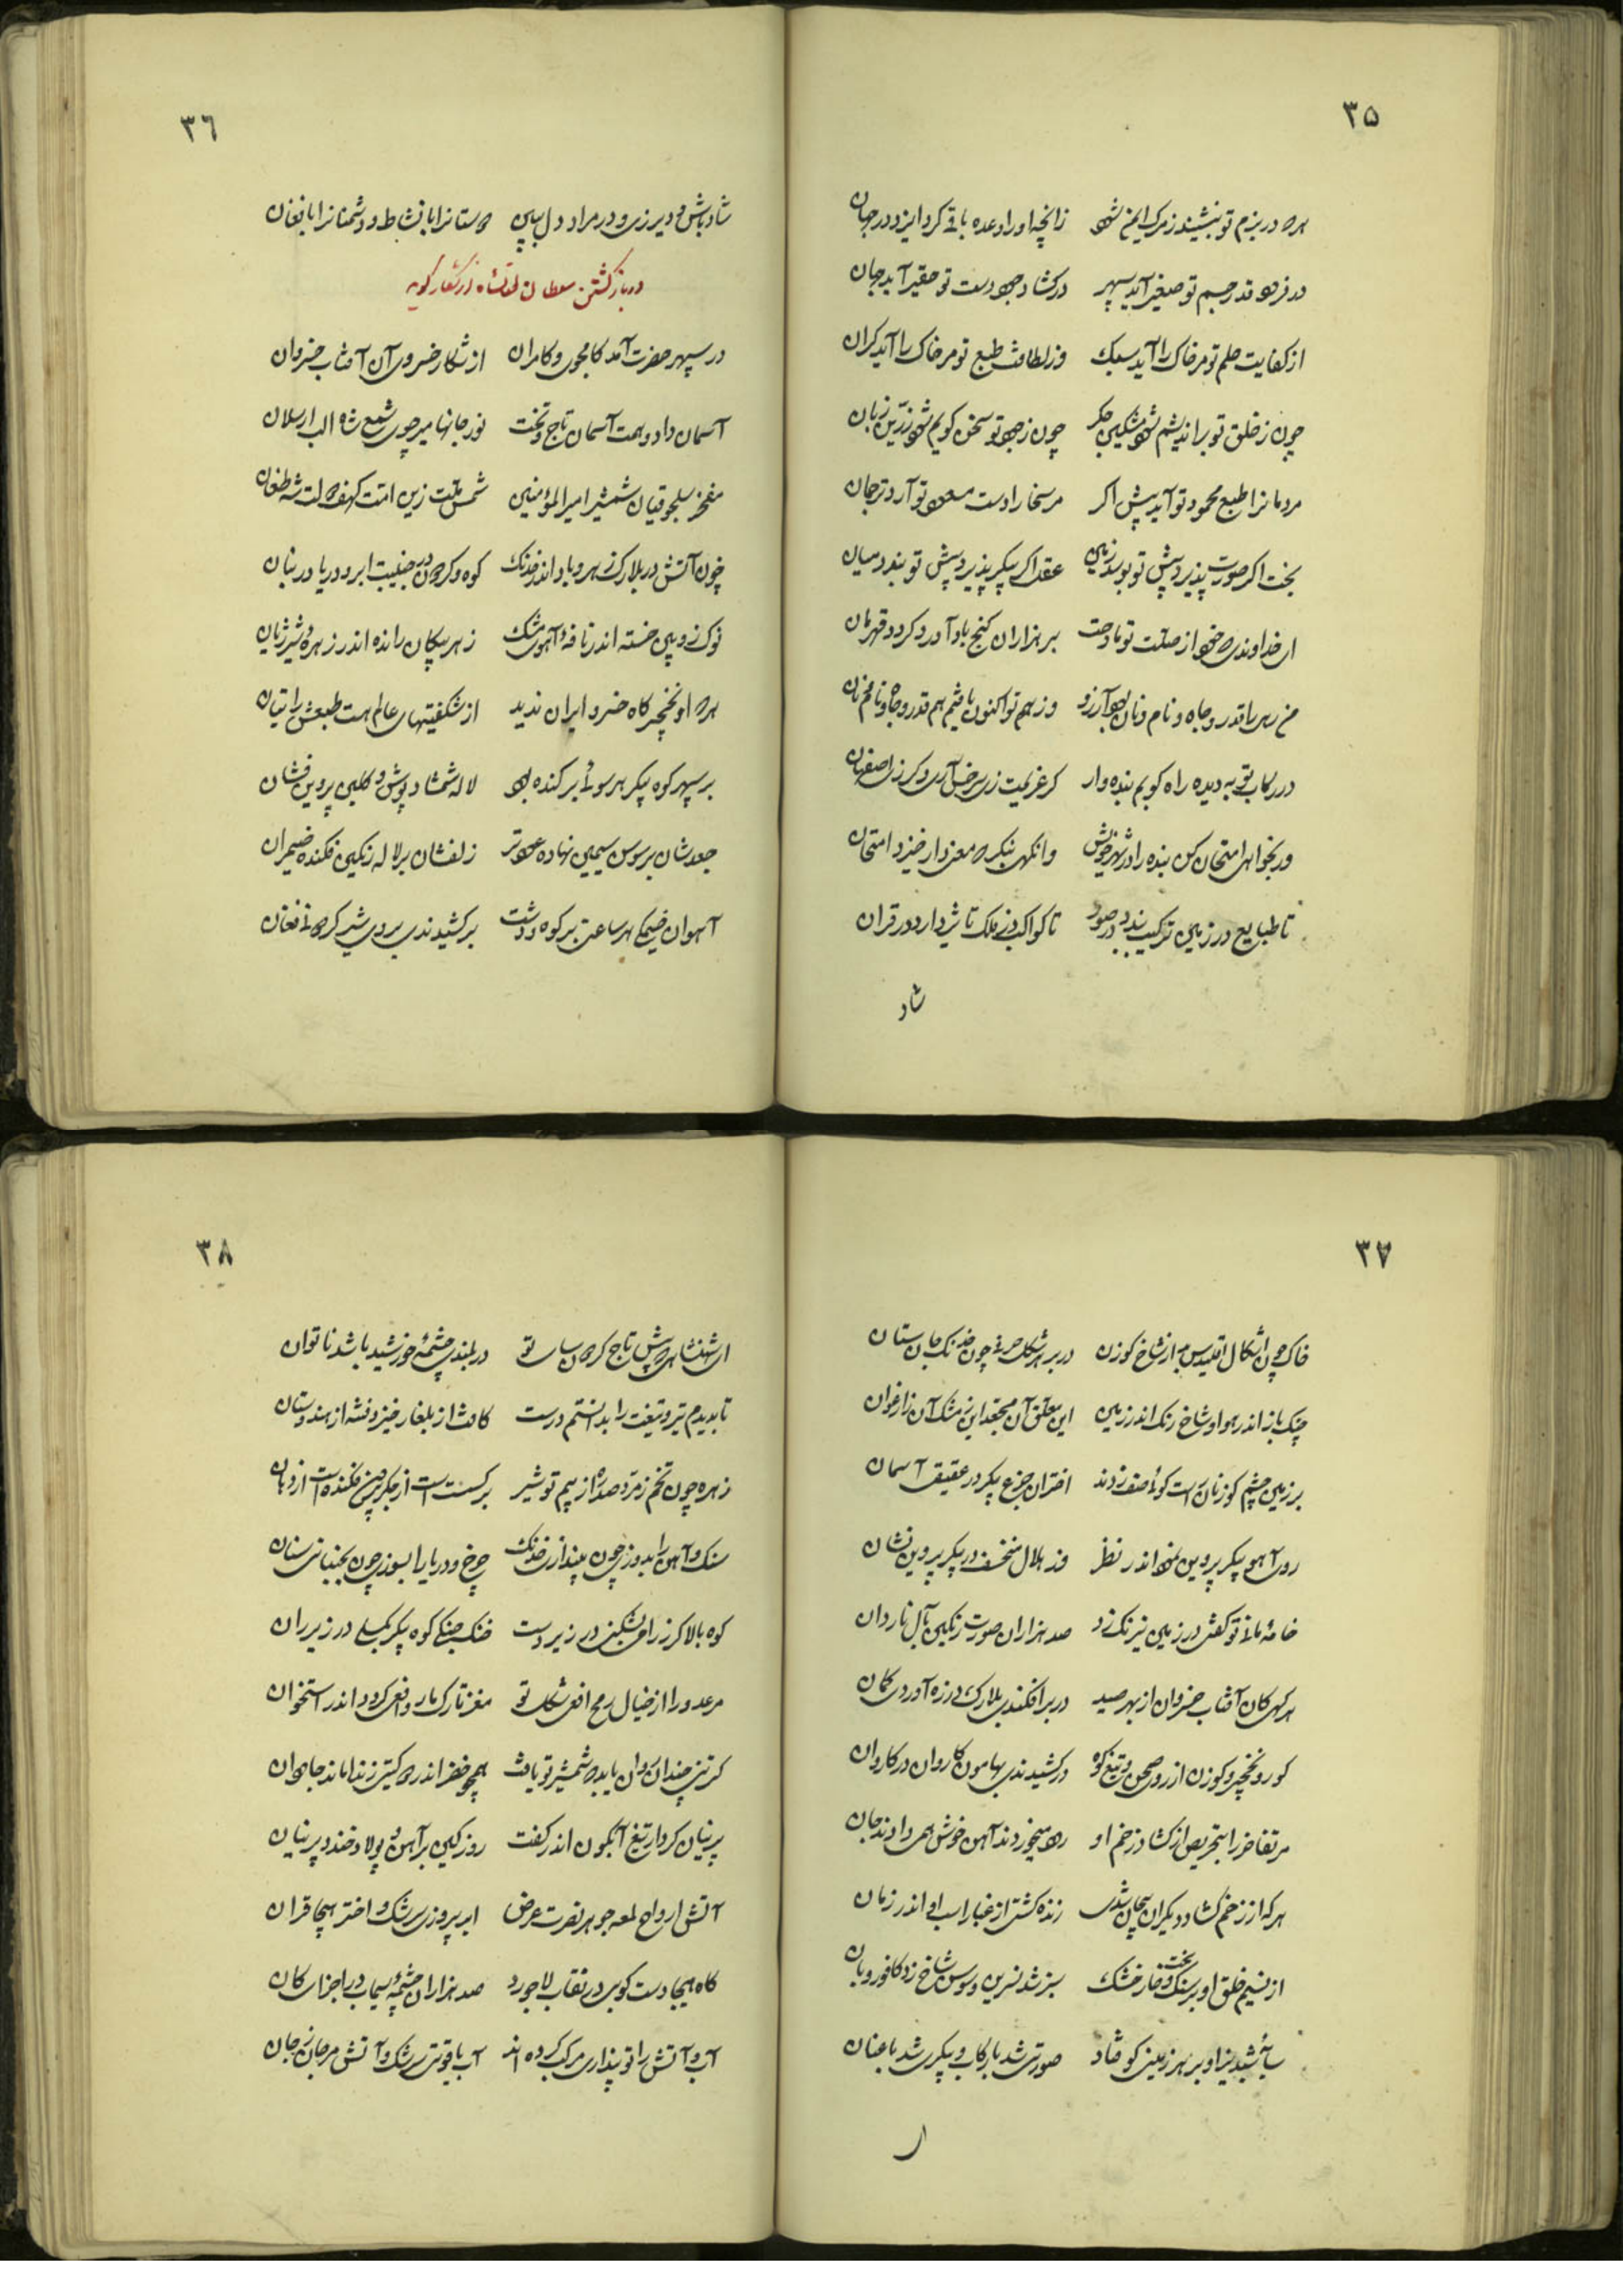 ۳۵
هرکه در بزم تو بنشیند ز مرگ ایمن شود زانچه او را وعده باقی کرد ایزد در جهان
در فر و قدر جسم تو صغیر آید سپهر در گشاد جود دست تو حقیر آید جهان
از کفایت حلم تو مر خاک را آید سبک وز لطافت طبع تو مر خاک را آید گران
چون ز خلق تو براندیشم شود مشکین جگر چون ز جود تو سخن گویم شود زرین زبان
مردمانرا طبع محمود تو آید پیش اگر مر سخا را دست مسعود تو آرد ترجمان
بخت اگر صورت پذیرد پیش تو بوسد زمین عقل اگر پیکر پذیرد پیش تو بندد میان
ای خداوندی که خود از صلت تو مادحت بر هزاران گنج باد آورد گردد قهرمان
من رهی را قدر و جاه و نام و نان بود آرزو وز بهر تو اکنون یافتم هم قدر و جاه و نام و نان
در رکاب تو به دیده راه کوبم بنده وار گر عزیمت زی سرخس آری و گر زی اصفهان
ور بخواهی امتحان کن بنده را در شهر خویش وانگهی بنگر که معنی دار خیزد امتحان
تا طبایع در زمین ترکیب بندد در صور تا کواکب در فلک تاثیر دارد در قران
شاد
۳٦
شاد باش و دیر زی و در مراد دل بپای دوستانرا با نشاط و دشمنانرا با فغان
در بازگشتن سلطان طغانشاه از شکار گوید
در سپهر حضرت آمد کامجوی و کامران از شکار خسروی آن آفتاب خسروان
آسمان داد و همت آسمان تاج و تخت نور جانها میر جوی شمع شه الب ارسلان
مفخر سلجوقیان شمشیر امیرالمؤمنین شمس ملت زین امت کهف دولت شه طغان
چون آتش در بلارک زهر و باد اندر خدنگ کوه و گردون در جنیبت ابر و دریا در بنان
نوک زوبین خسته اندر نافهٔ آهوی مشک زهر پیکان رانده اندر زهرهٔ شیر ژیان
هرکه او نخچیرگاه خسرو ایران ندید از شگفتیهای عالم هست طبعش را تیان
بر سپهر کوه پیکر هر سوئی برکنده بود لاله شمشاد پوش و گلبن پروین فشان
جعدشان بر سوسن سیمین نهاده عود تر زلفشان بر لاله رنگین فکنده ضیمران
آهوان خیمگی هر ساعتی بر کوه و دشت برکشیدندی بروی شیر گردونی فغان
۳۷
خاک چون اشکال اقلیدس بد از شاخ گوزن در بر هر شکل حرفی چون خدنگ جان ستان
چنگ باز اندر هوا و شاخ رنگ اندر زمین این معلق آن مجعد این ز مشک آن زارغوان
بر زمین چشم گوزنان است گوئی صف زدند اختران جزع پیکر در عقیقی آسمان
روی آهو پیکر پروین نمود اندر نظر وز هلال منخسف در پیکر پروین نشان
خامهٔ مانی تو گفتی در زمین نیرنگ زد صد هزاران صورت رنگین بآب ناردان
هر گهی کان آفتاب خسروان از بهر صید در بر افکندی بلارک در زه آوردی کمان
گور و نخچیر و گوزن از روی صحن و تیغ کوه در کشیدندی بهامون کاروان در کاروان
مر تفاخر را بتحریص از گشاد زخم او ره میخوردند آهن خوش همی دادند جان
هرکه از زخم گشاد دیگران بیجان شدی زنده گشتی از غبار اسب او اندر زمان
از نسیم خلق او بر سنگ سخت و خار خشک سبز شد نسرین و سوسن شاخ زد کافور و بان
سایهٔ شبدیز او بر هر زمین کو فتاد صورتی شد با رکاب و پیکری شد با عنان
ا
۳۸
ای شهنشاهی که پیش تاج گردون سای تو در بلندی چشمهٔ خورشید باشد ناتوان
تا بدیدم تیر و تیغت را بدانستم درست کافت از بلغار خیزد فتنه از هندوستان
زهره چون تخم زمرد صد ره از بیم تو شیر بر گسست است از جگر پس فکنده است از دهان
سنگ و آهن را بدوزی چون بیندازی خدنگ چرخ و دریا را بسوزی چون بجنبانی سنان
کوه بالا گرز رامش افکنی در زیر دست خنگ جنگی کوه پیکر بگسلی در زیر ران
مر عدو را از خیال رمح افعی شکل تو مغز تارک مار و افعی گردد اندر استخوان
گر تنی چندان روان یابد که شمشیر تو یافت همچو خضر اندر دو گیتی زنده ماند جاودان
پرنیان کردار تیغ آبگون اندر کفت روز کین بر آهن و پولاد خندد پرنیان
آتش ارواح لمعه جوهر نصرت عرض ابر پیروزی سرشک و اختر هیجا قران
گاه هیجا دست گویی در نقاب لاجورد صد هزاران چشمهٔ سیماب در اجزای کان
آب و آتش را تو پنداری مرکب کرده اند آب یاقوتی سرشک و آتش مرجان زجان